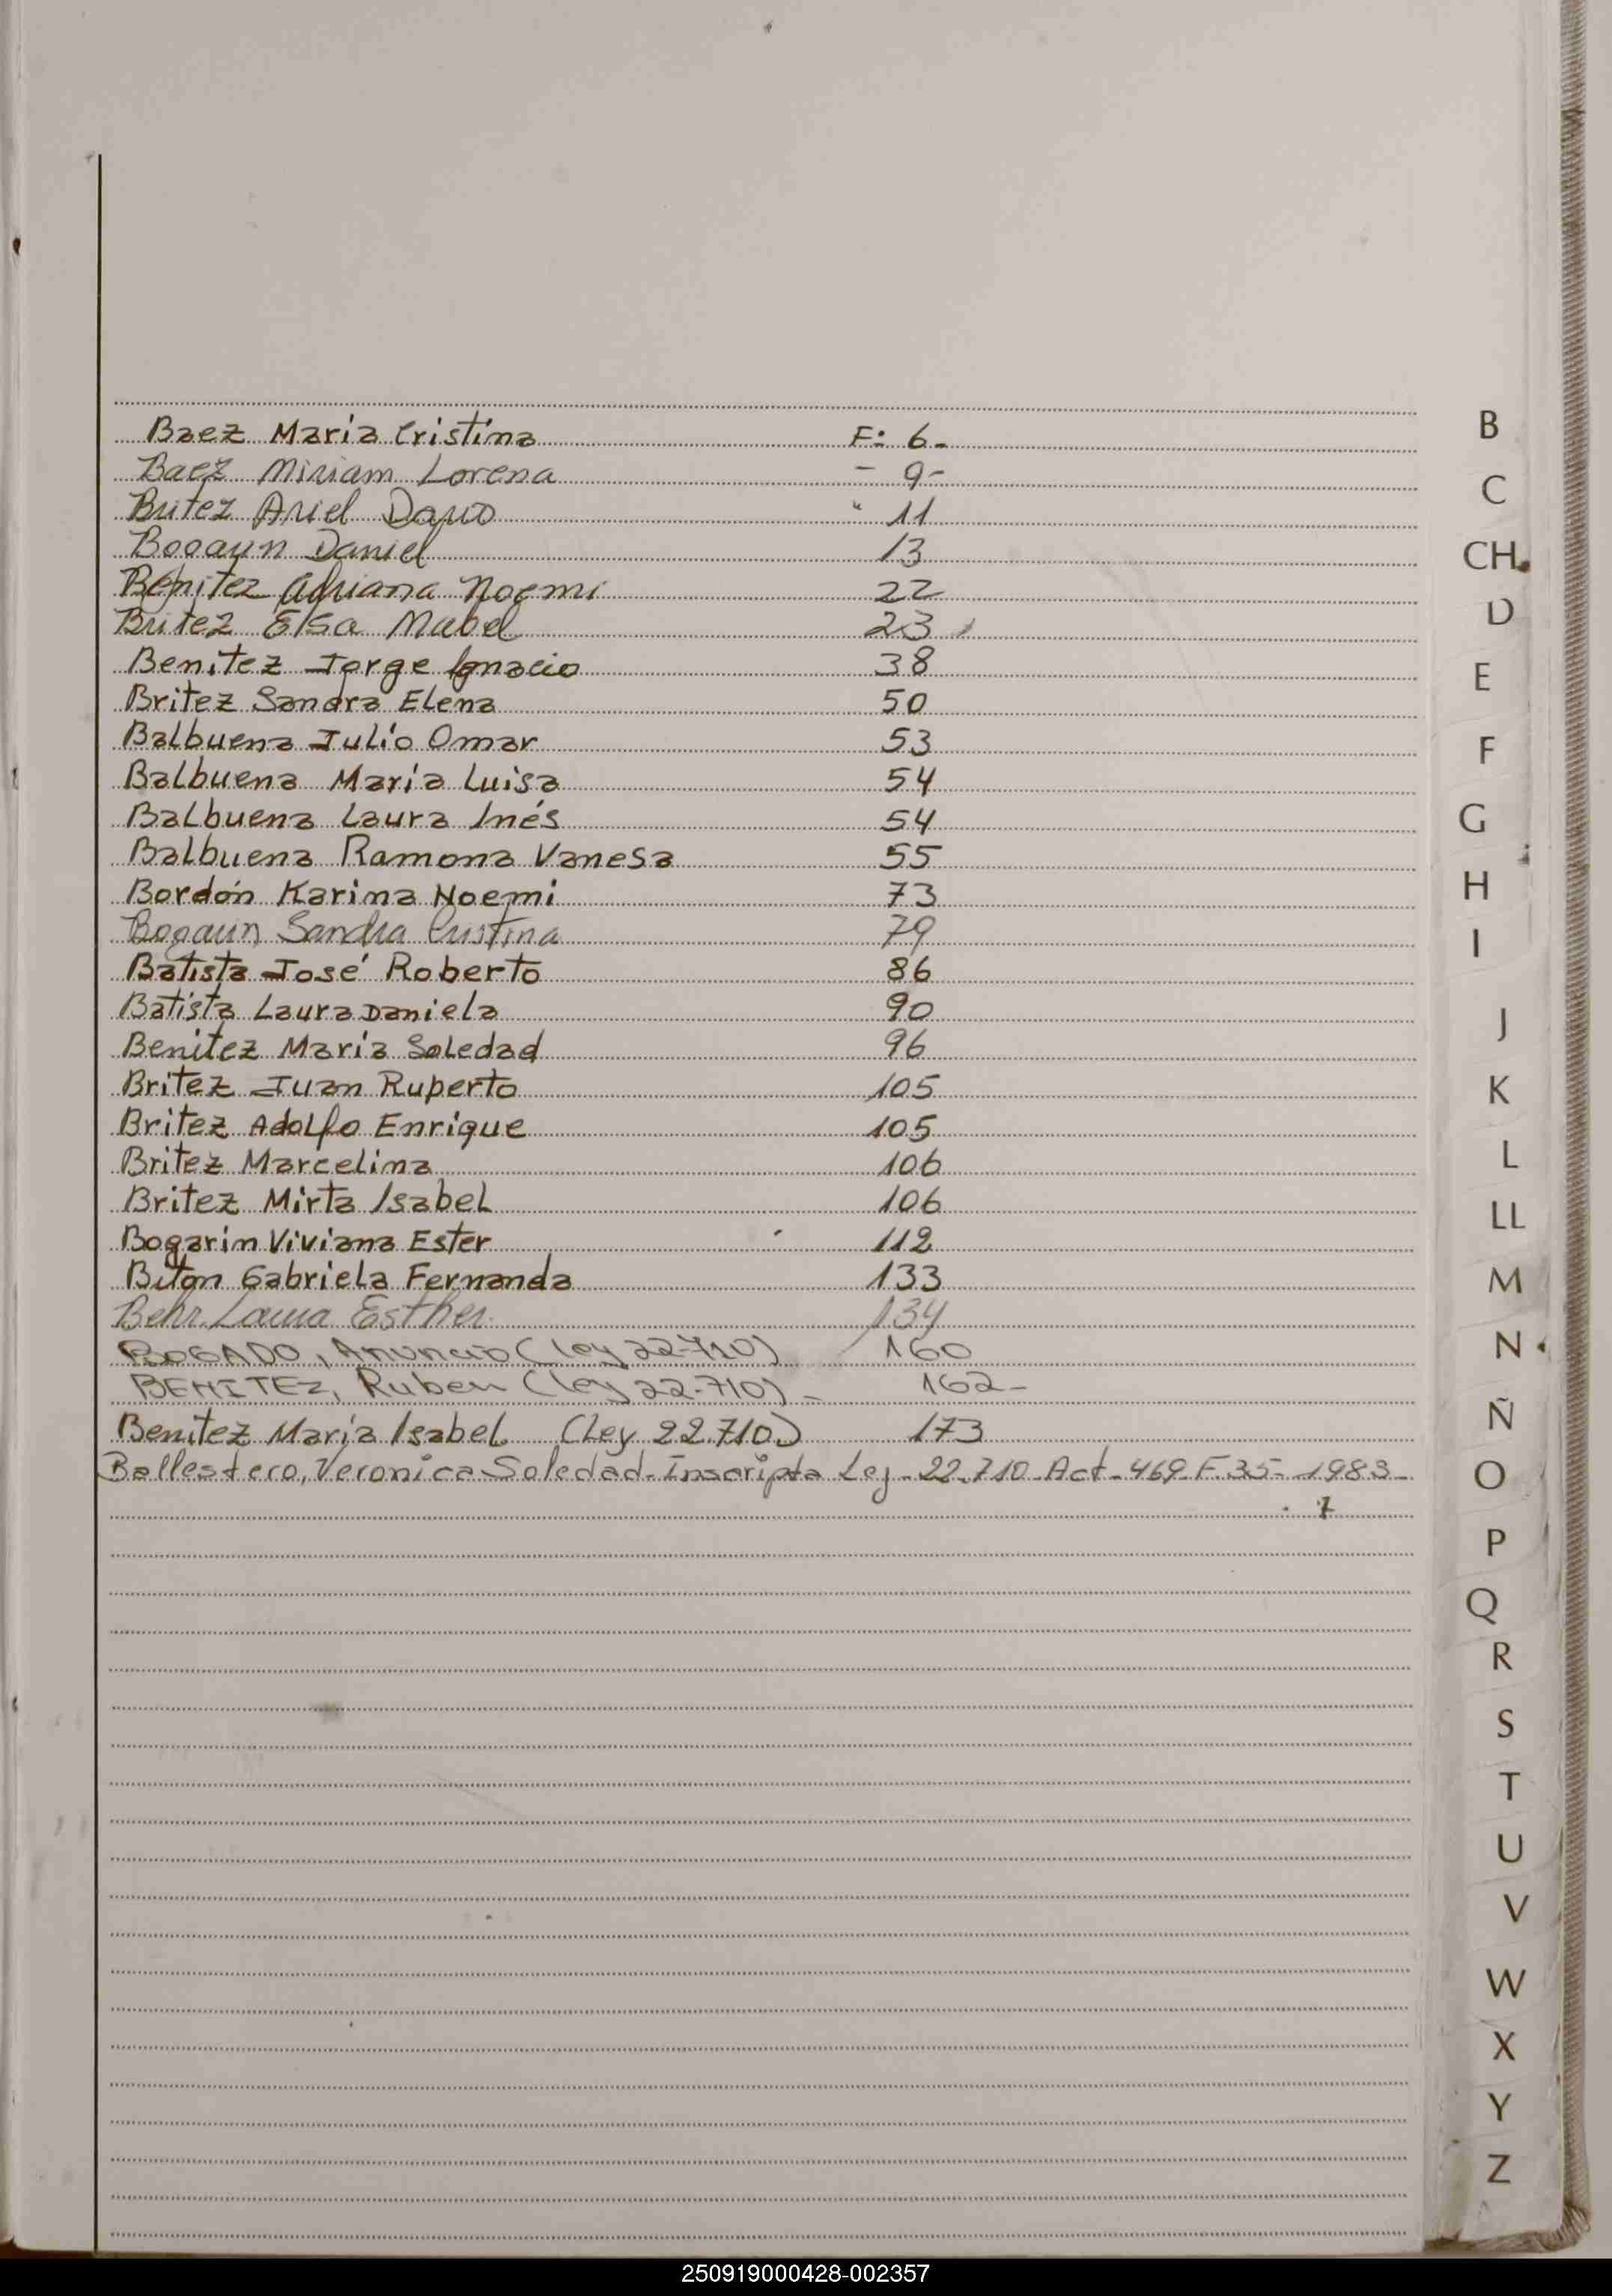 Baez Maria Cristina F: 6-
Baez Miriam Lorena - 9-
Britez Ariel Dario " 11
Bogarin Daniel 13
Benitez Adriana Noemi 22
Britez Elsa Mabel 23
Benitez Jorge Ignacio 38
Britez Sandra Elena 50
Balbuena Julio Omar 53
Balbuena Maria Luisa 54
Balbuena Laura Inés 54
Balbuena Ramona Vanesa 55
Bordón Karina Noemi 73
Bogarin Sandra Cristina 79
Batista José Roberto 86
Batista Laura Daniela 90
Benitez Maria Soledad 96
Britez Juan Ruperto 105
Britez Adolfo Enrique 105
Britez Marcelina 106
Britez Mirta Isabel 106
Bogarin Viviana Ester 112
Biton Gabriela Fernanda 133
Behr Laura Esther. 134
BOGADO, Anuncio (ley 22-710) 160
BENITEZ, Ruben (ley 22.710) - 162-
Benitez Maria Isabel (Ley 22.710) 173
Ballestero, Veronica Soledad-Inscripta Ley-22.710 Act-469 F.35- 1983-
B
C
CH
D
E
F
G
H
I
J
K
L
LL
M
N
Ñ
O
P
Q
R
S
T
U
V
W
X
Y
Z
250919000428-002357